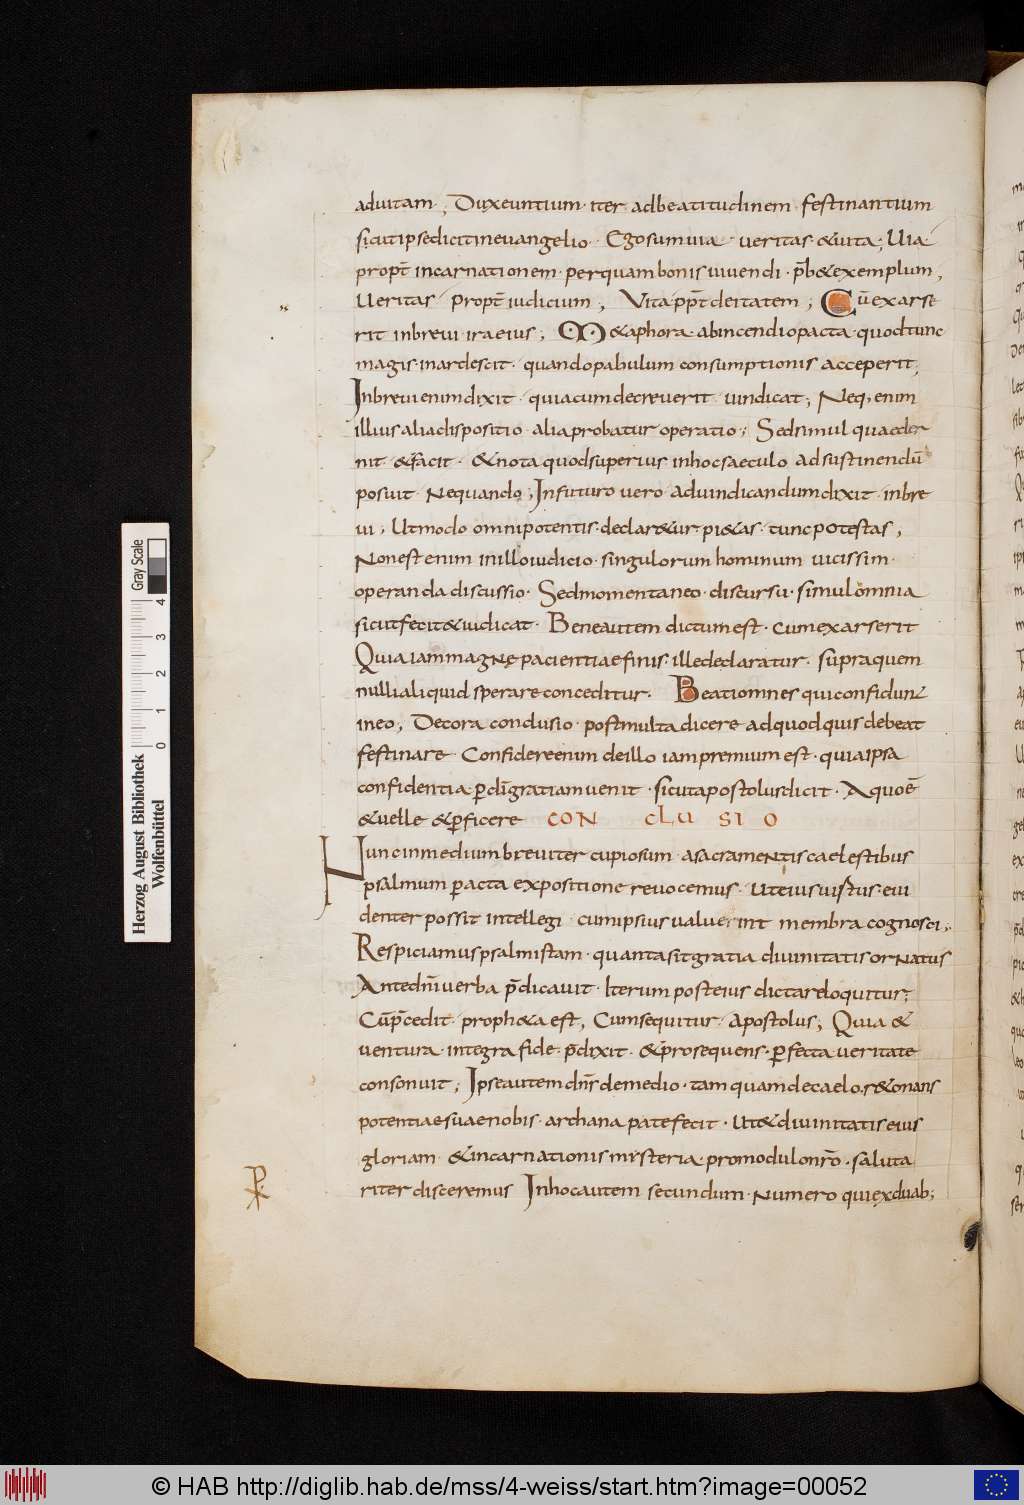 aduitam·; Dux euntium· iter adbeatitudinem· festinantium
sicut ipse dicit in euangelio· Ego sum uia· ueritas· &uita; Uia
propt̄ incarnationem· per quam bonis uiuendi· p̄b& exemplum;
Ueritas propt̄ iudicium; Vita ppt̄ deitatem; Cū exarse
rit in breui ira eius; M&aphora· ab incendio pacta· quod tunc
magis inardescit· quando pabulum consumptionis acceperit;
In breui enim dixit· quia cum decreuerit uindicat; Neq; enim
illius alia dispositio· alia probatur operatio; Sed simul quae decer
nit &facit· &nota quod superius in hoc saeculo ad sustinendū
posuit Ne quando; In futuro uero ad uindicandum dixit· in bre
ui; Ut modo omnipotentis· declar&ur pi&as· tunc potestas;
Non est enim in illo iudicio· singulorum hominum uicissim·
operan da discussio· Sed momentaneo· discursu· simul omnia
sicut fecit &iudicat· Bene autem dictum est· cum exarserit
Quia iam magnę pacientiae finis· ille declaratur· supra quem
nulli aliquid sperare conceditur· Beati omnes qui confidunt
in eo; Decora conclusio· post multa dicere ad quod quis debeat
festinare· Confidere enim de illo iam premium est· quia ipsa
confidentia p̱ dn̄i gratiam uenit· sicut apostolus dicit· A quo ē
&uelle &p̱ficere CON CLU SI O
Hunc in medium breuiter cupio sum· a sacramentis caelestibus
psalmum p̱acta expositione reuocemus· Ut eius uirtus· eui
denter possit intellegi cum ipsius ualuerint membra cognosci;
Respiciamus psalmistam· quanta sit gratia diuinitatis ornatus
Ante dn̄i uerba p̄dicauit· Iterum post eius dicta reloquitur;
Cū p̄cedit· proph&a est; Cum sequitur· apostolus; Quia &
uentura· integra fide· p̄dixit· &prosequens· p̱fecta ueritate
consonuit; Ipse autem dn̄s de medio· tam quam de caelo· r&onans
potentiae suae nobis· archana patefecit· Ut &diuinitatis eius
gloriam &incarnationis mysteria· pro modulo nr̄o· saluta
riter disceremus In hoc autem secundum· Numero qui ex duab;
Herzog August Bibliothek
Wolfenbüttel
0 1 2 3 4
Gray Scale
© HAB http://diglib.hab.de/mss/4-weiss/start.htm?image=00052